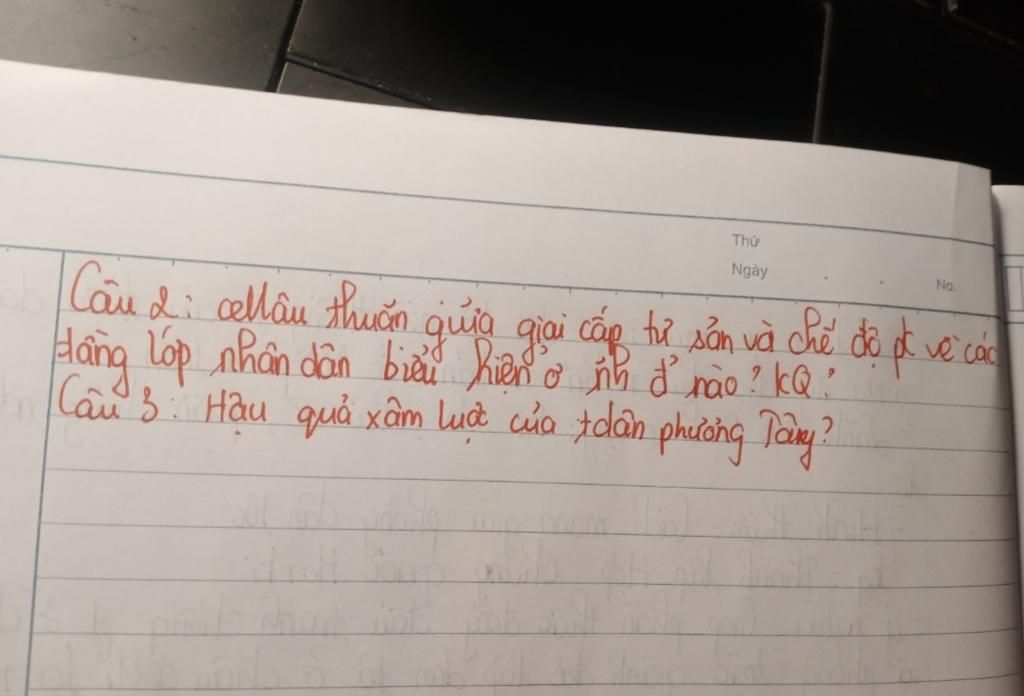 Thứ
Ngày
No.
Câu 2: Mâu thuẫn giữa giai cấp tư sản và chế độ pk về các
tầng lớp nhân dân biểu hiện ở nh đ' nào? KQ?
Câu 3: Hậu quả xâm lược của tdân phương Tây?